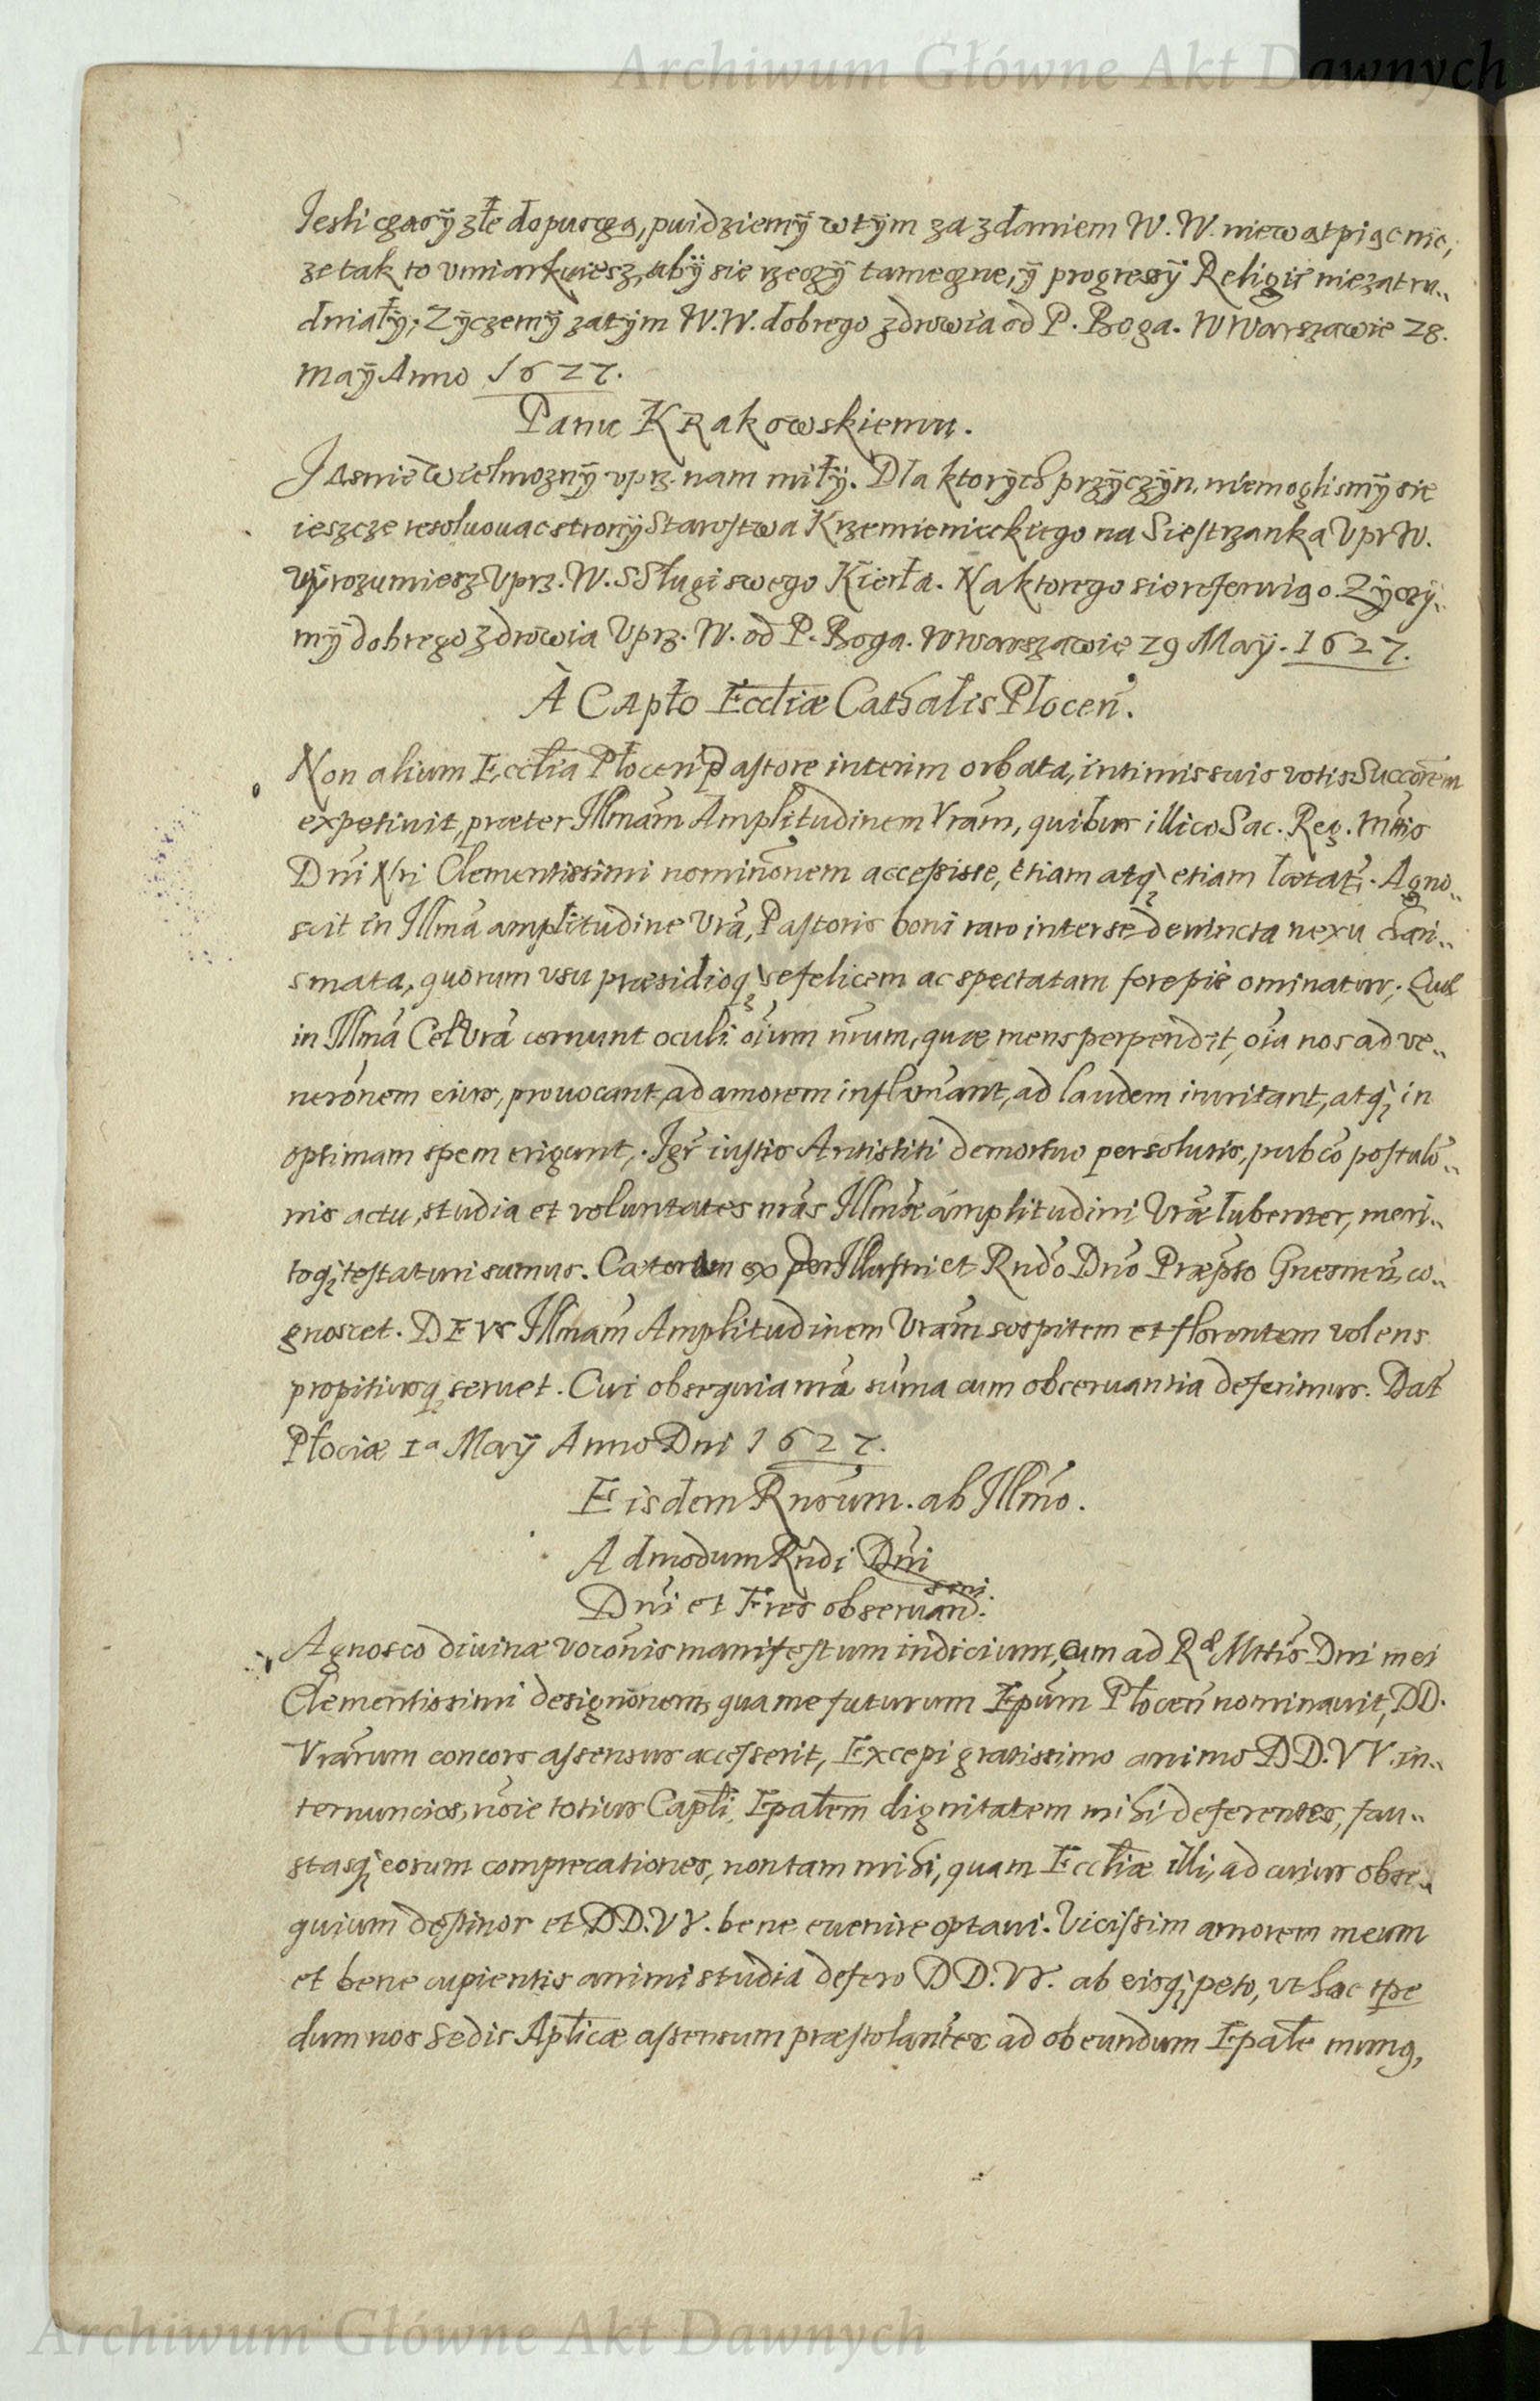 Archiwum Główne Akt Dawnych
Iesli czasÿ złe dopusczą, puidziemÿ w tÿm za zdaniem W. W. niewątpiąc nic,
ze tak to vmiarkuiesz, abÿ sie rzeczÿ tameczne, ÿ progressÿ Religiē niezatru„
dniałÿ; Zÿczemÿ zatÿm W. W. dobrego zdrowia od P. Boga. W Warszawie 28.
Maÿ Anno 1627.
Panu Krakowskiemu.
Jasnie Wielmoznÿ vprz. nam miłÿ. Dla ktorÿch przÿczÿn, niemoglismÿ sie
ieszcze resoluouac stronÿ Starostwa Krzemienieckiego na Siestrzanka Vpr W.
wÿrozumiesz Vprz. W. S Sługi swego Kierła. Na ktorego sie referuigo. Zÿczÿ„
mÿ dobrego zdrowia Vprz. W. od P. Boga. W Warszawie 29 Maÿ. 1627.
A Capło Eccliæ Cathalis Płoceñ.
Non alium Ecclia Płoceñ Pastore interim orbata, intimis suis votis Succorem
expetiuit, præter Illmam Amplitudinem Vram, quibus illico Sac. Reg. Mttis
Dni Nri Clementissimi nominonem accessisse, etiam atq; etiam lætat. Agno„
scit in Illma amplitudine Vra, Pastoris boni raro inter se deuincta nexu chari„
smata, quorum vsu præsidioq; se felicem ac spectatam fore pie ominatur; Quæ
in Illma Cel Vra cernunt oculi oium nrum, quæ mens perpendit, oia nos ad ve„
neronem eius, prouocant, ad amorem inflamant, ad laudem inuitant, atq; in
optimam spem erigunt. Igr iustis Antistiti demortuo persolutis, pubco postulo„
nis actu, studia et voluntates nras Illmæ amplitudini Vræ lubenter, meri„
toq; testaturi sumus. Cæterum ex per Illustri et Rndo Dno Præpto Gnesneñ co„
gnoscet. DEVS Illmam Amplitudinem Vram sospitem et florentem volens
propitiusq; seruet. Cui obsequia nra suma cum obseruantia deferimus. Dat
Płociæ 1a Maÿ Anno Dni 1627.
Eisdem Rnsum. ab Illmo.
Admodum Rndi Dni
Dni et Fres obseruand.
Agnosco diuinæ voconis manifestum indicium, cum ad Ræ Mttis Dni mei
Clementissimi designonem, qua me futurum Epum Płoceñ nominauit, DD.
Vrarum concors assensus accesserit, Excepi gratissimo animo DD. VV. in„
ternuncios, noie totius Capli, Epalem dignitatem mihi deferentes, fau„
stasq; eorum comprecationes, non tam mihi, quam Eccliæ illi, ad cuius obse„
quium destinor et DD. VV. bene euenire optaui. Vicissim amorem meum
et bene cupientis animi studia defero DD. VV. ab eisq; peto, vt hac tpe
dum nos Sedis Aplicæ assensum præstolantes ad obeundum Epale munq,
Archiwum Główne Akt Dawnych